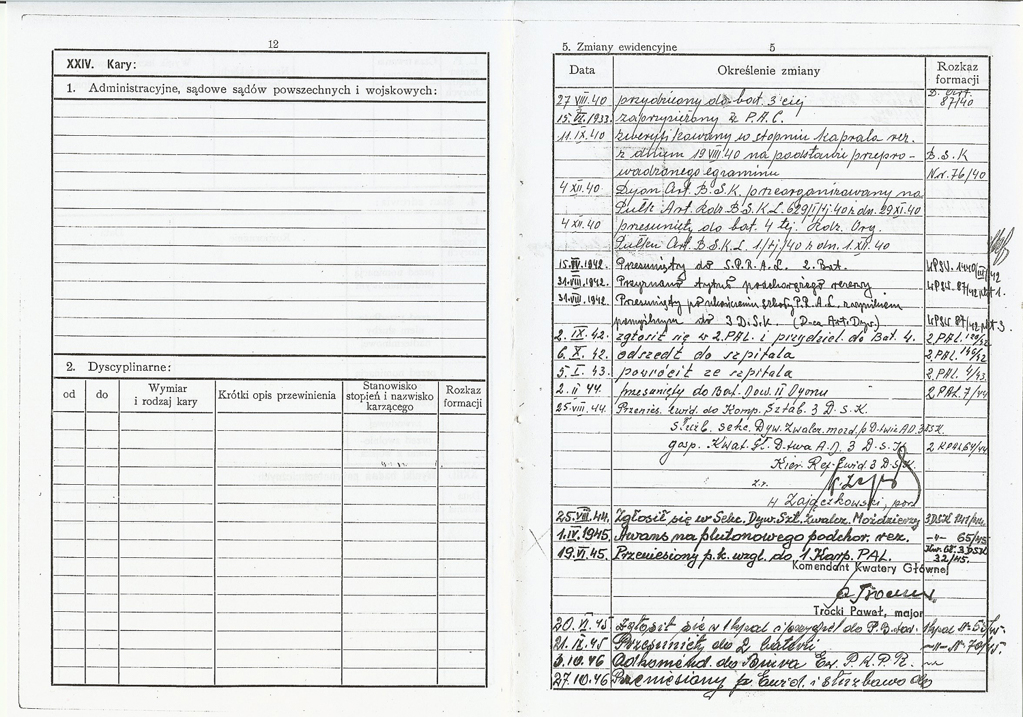 12
XXIV. Kary:
1. Administracyjne, sądowe sądów powszechnych i wojskowych:
2. Dyscyplinarne:
od
do
Wymiar
i rodzaj kary
Krótki opis przewinienia
Stanowisko
stopień i nazwisko
karzącego
Rozkaz
formacji
5. Zmiany ewidencyjne
5
Data
Określenie zmiany
Rozkaz
formacji
27 VIII.40 przydzielony do bat. 3ciej D. Art. 87/40
15.VI.1933 zaprzysiężony z P.A.C.
11.IX.40 zweryfikowany w stopniu kaprala rez.
z dniem 19 VIII 40 na podstawie przepro- B.S.K
wadzonego egzaminu Nr. 76/40
4 XII.40 Dyon Art. B.S.K. przeorganizowany na
Pułk Art. B.S.K.L. 629/I/tj.40 z dn. 29 XI.40
4 XII.40 przesunięty do bat. 4 tej. Rozk. Org.
Pułku Art. B.S.K.L. 1/tj/40 z dn. 1.XII.40
1942. Przesunięty do S.P.R.A.L. 2. Bat.
31.VIII.1942. Przyznano tytuł podchorążego rezerwy
31.VIII.1942. Przesunięty po ukończeniu szkoły P.R.A.L. z wynikiem
pomyślnym do 3 D.S.K. (D-ca Art. Dyw.)
2. IX 42. zgłosił się w 2.PAL. i przydziel. do Bat. 4. 2.PAL.
6. X. 42. odszedł do szpitala 2.PAL.
5. I. 43. powrócił ze szpitala 2.PAL. 4/43
2. II 44. przesunięty do Bat. Dow. II Dyonu 2 PAL. 7/44
25.VIII.44. Przenies. Ewid. do Komp. Sztab. 3 D.S.K.
Służb. sekc. Dyw. Zwalcz. mozd. p. D-twie A.D. 3 DSK.
gosp. Kwat. Gł. D-twa A.D. 3 D.S.K
Kier. Ref. Ewid. 3 D.S.K.
z.r.
H Zajączkowski, por.
25.VIII.44. Zgłosił się w Sekc. Dyw. Szt. Zwalcz. Moździerzy
1.IV.1945. Awans na plutonowego podchor. rez. -„- 65/45
19.VI.45. Przeniesiony p.k. wzgl. do 1 Karp. PAL. Kw. Gł. 3 DSK 32/45.
Komendant Kwatery Głównej
Trocki Paweł, major
20.VI.45 Zgłosił się w 1 kpal i przydziel do
21.IX.45 Przesunięty do 2 baterii
3.10.46 Odkomend. do Biura Ew. P.K.P.R.
27.10.46 Przeniesiony p. Ewid. i służbowo do